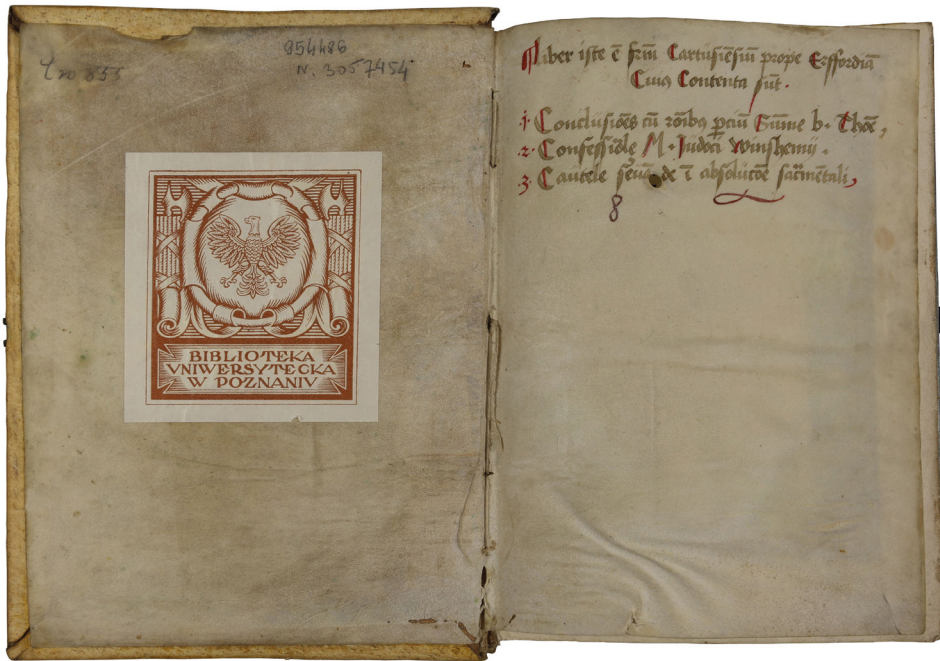 954486
N. 3057454
855
BIBLIOTEKA
VNIWERSYTECKA
W POZNANIV
Liber iste ē frm̄ Cartusiēsiū prope Erffordiā
Cuiꝰ Contenta sūt.
.1. Conclusiōes cū rōibꝰ ꝑciū Sūme b. Thōe,
.2. Confessiōle M. Judoci Winshemij.
.3. Cautele ī absolucōe sac̄mētali,
8